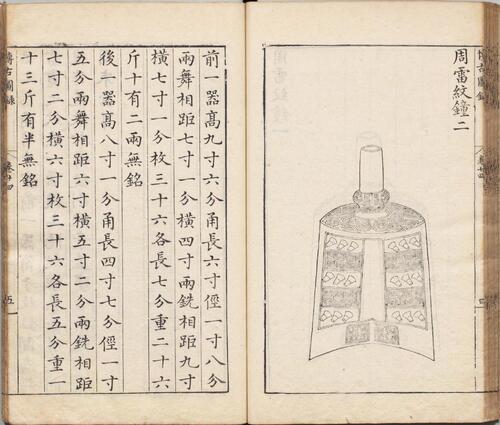 周雷紋鐘二
前一器高九寸六分甬長六寸徑一寸八分
兩舞相距七寸一分橫四寸兩銑相距九寸
橫七寸一分枚三十六各長七分重二十六
斤十有二兩無銘
後一器高八寸一分甬長四寸七分徑一寸
五分兩舞相距六寸橫五寸二分兩銑相距
七寸二分橫六寸枚三十六各長五分重一
十三斤有半無銘
博古圖錄
卷廿四
五